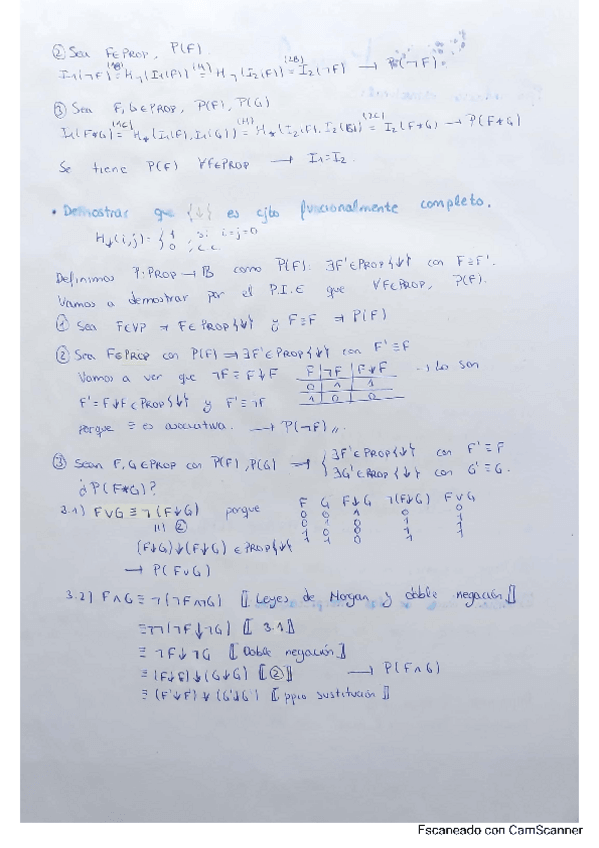 ② Sea F∈PROP, P(F).
I₁(¬F) = H¬(I₁(F)) = H¬(I₂(F)) = I₂(¬F) → P(¬F).
③ Sea F,G∈PROP, P(F), P(G)
I₁(F*G) = H*(I₁(F), I₁(G)) = H*(I₂(F), I₂(G)) = I₂(F*G) → P(F*G)
Se tiene P(F) ∀F∈PROP → I₁=I₂.
• Demostrar que {↓} es cjto funcionalmente completo.
H↓(i,j) = { 1 si i=j=0
0 , c.c
Definimos P: PROP → B como P(F): ∃F'∈PROP{↓} con F≡F'.
Vamos a demostrar por el P.I.E que ∀F∈PROP, P(F).
① Sea F∈VP ⇒ F∈PROP{↓} y F≡F ⇒ P(F)
② Sea F∈PROP con P(F) ⇒ ∃F'∈PROP{↓} con F'≡F
Vamos a ver que ¬F ≡ F↓F
F ¬F F↓F
0 1 1
1 0 0
→ Lo son
F'=F↓F∈PROP{↓} y F'≡¬F
porque ≡ es asociativa. → P(¬F)
③ Sean F,G∈PROP con P(F), P(G) → { ∃F'∈PROP{↓} con F'≡F
∃G'∈PROP{↓} con G'≡G.
¿P(F*G)?
3.1) F∨G ≡ ¬(F↓G) porque
F G F↓G ¬(F↓G) F∨G
0 0 1 0 0
0 1 0 1 1
1 0 0 1 1
1 1 0 1 1
②
(F↓G)↓(F↓G)∈PROP{↓}
→ P(F∨G)
3.2) F∧G ≡ ¬(¬F∧¬G) [Leyes de Morgan y doble negación]
≡ ¬¬(¬F↓¬G) [3.1]
≡ ¬F↓¬G [Doble negación]
≡ (F↓F)↓(G↓G) [②] → P(F∧G)
≡ (F'↓F')↓(G'↓G') [ppio sustitución]
Escaneado con CamScanner